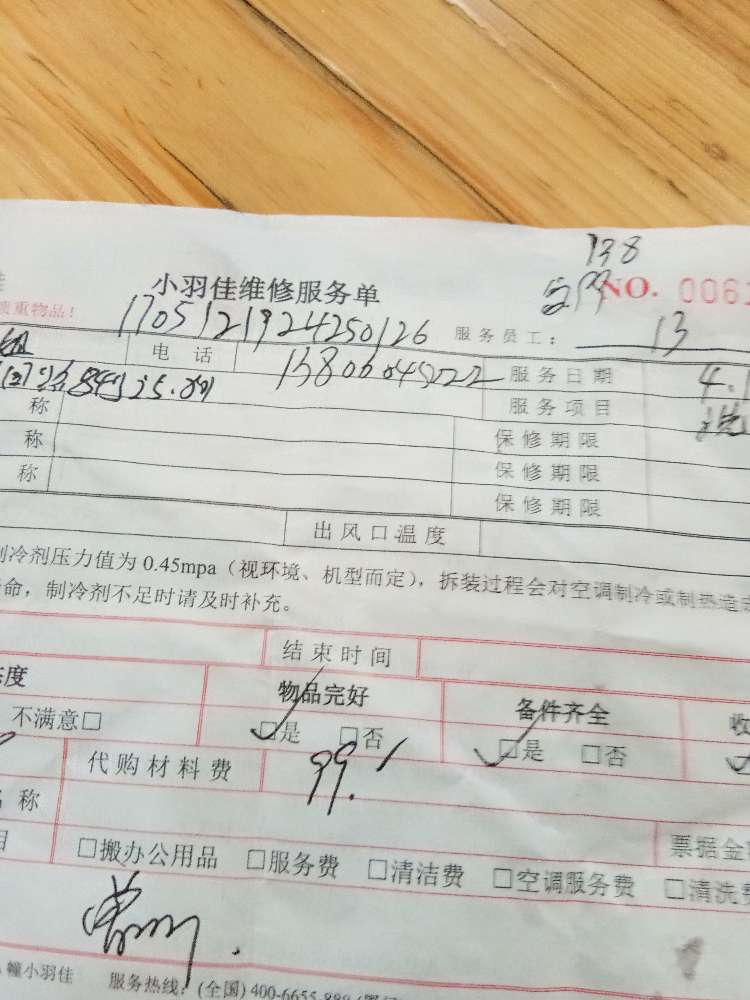 138
小羽佳维修服务单
NO. 006
贵重物品!
1705121924250126
服务员工: 13
电话 13806045222 服务日期 4.1
称 服务项目 洗
称 保修期限
称 保修期限
保修期限
出风口温度
制冷剂压力值为 0.45mpa（视环境、机型而定），拆装过程会对空调制冷或制热造成
命，制冷剂不足时请及时补充。
结束时间
态度 物品完好 备件齐全 收
不满意□ □是 □否 □是 □否
代购材料费 99.
名称
票据金
目 □搬办公用品 □服务费 □清洁费 □空调服务费 □清洗费
幢小羽佳 服务热线：(全国) 400-6655-88